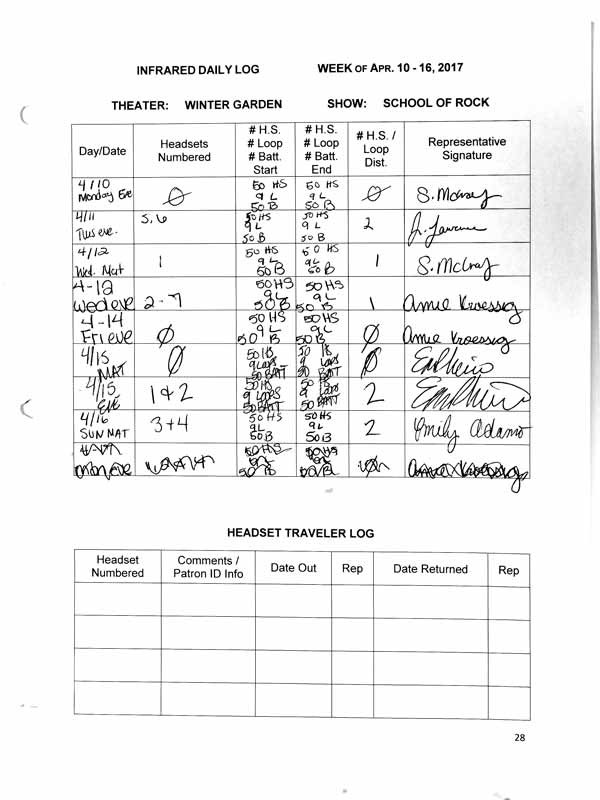 INFRARED DAILY LOG WEEK OF APR. 10 - 16, 2017
THEATER: WINTER GARDEN SHOW: SCHOOL OF ROCK
Day/Date Headsets Numbered # H.S. # Loop # Batt. Start # H.S. # Loop # Batt. End # H.S. / Loop Dist. Representative Signature
4/10 Monday Eve Ø 50 HS 9 L 50 B 50 HS 9 L 50 B Ø
4/11 Tues eve. 5, 6 50 HS 9 L 50 B 50 HS 9 L 50 B 2
4/12 Wed. Mat 1 50 HS 9 L 50 B 50 HS 9 L 50 B 1
4-12 Wed eve 2-7 50 HS 9L 50 B 50 HS 9L 50 B 1 Amie Kroessig
4-14 Fri eve Ø 50 HS 9L 50 B 50 HS 9L 50 B Ø Amie Kroessig
4/15 MAT Ø 50 HS 9 LOOPS 50 BATT 50 HS 9 LOOPS 50 BATT Ø
4/15 EVE 1 & 2 50 HS 9 LOOPS 50 BATT 50 HS 9 LOOPS 50 BATT 2
4/16 SUN MAT 3+4 50 HS 9L 50 B 50 HS 9L 50 B 2 Emily Adams
50 HS 50 B
HEADSET TRAVELER LOG
Headset Numbered Comments / Patron ID Info Date Out Rep Date Returned Rep
28